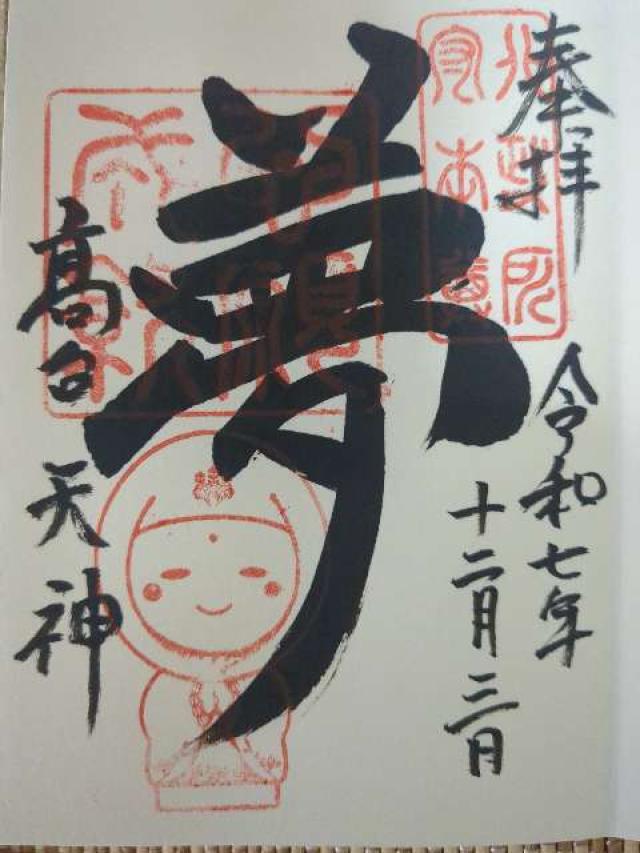 奉拝
令和七年
十二月三日
夢
高台天神